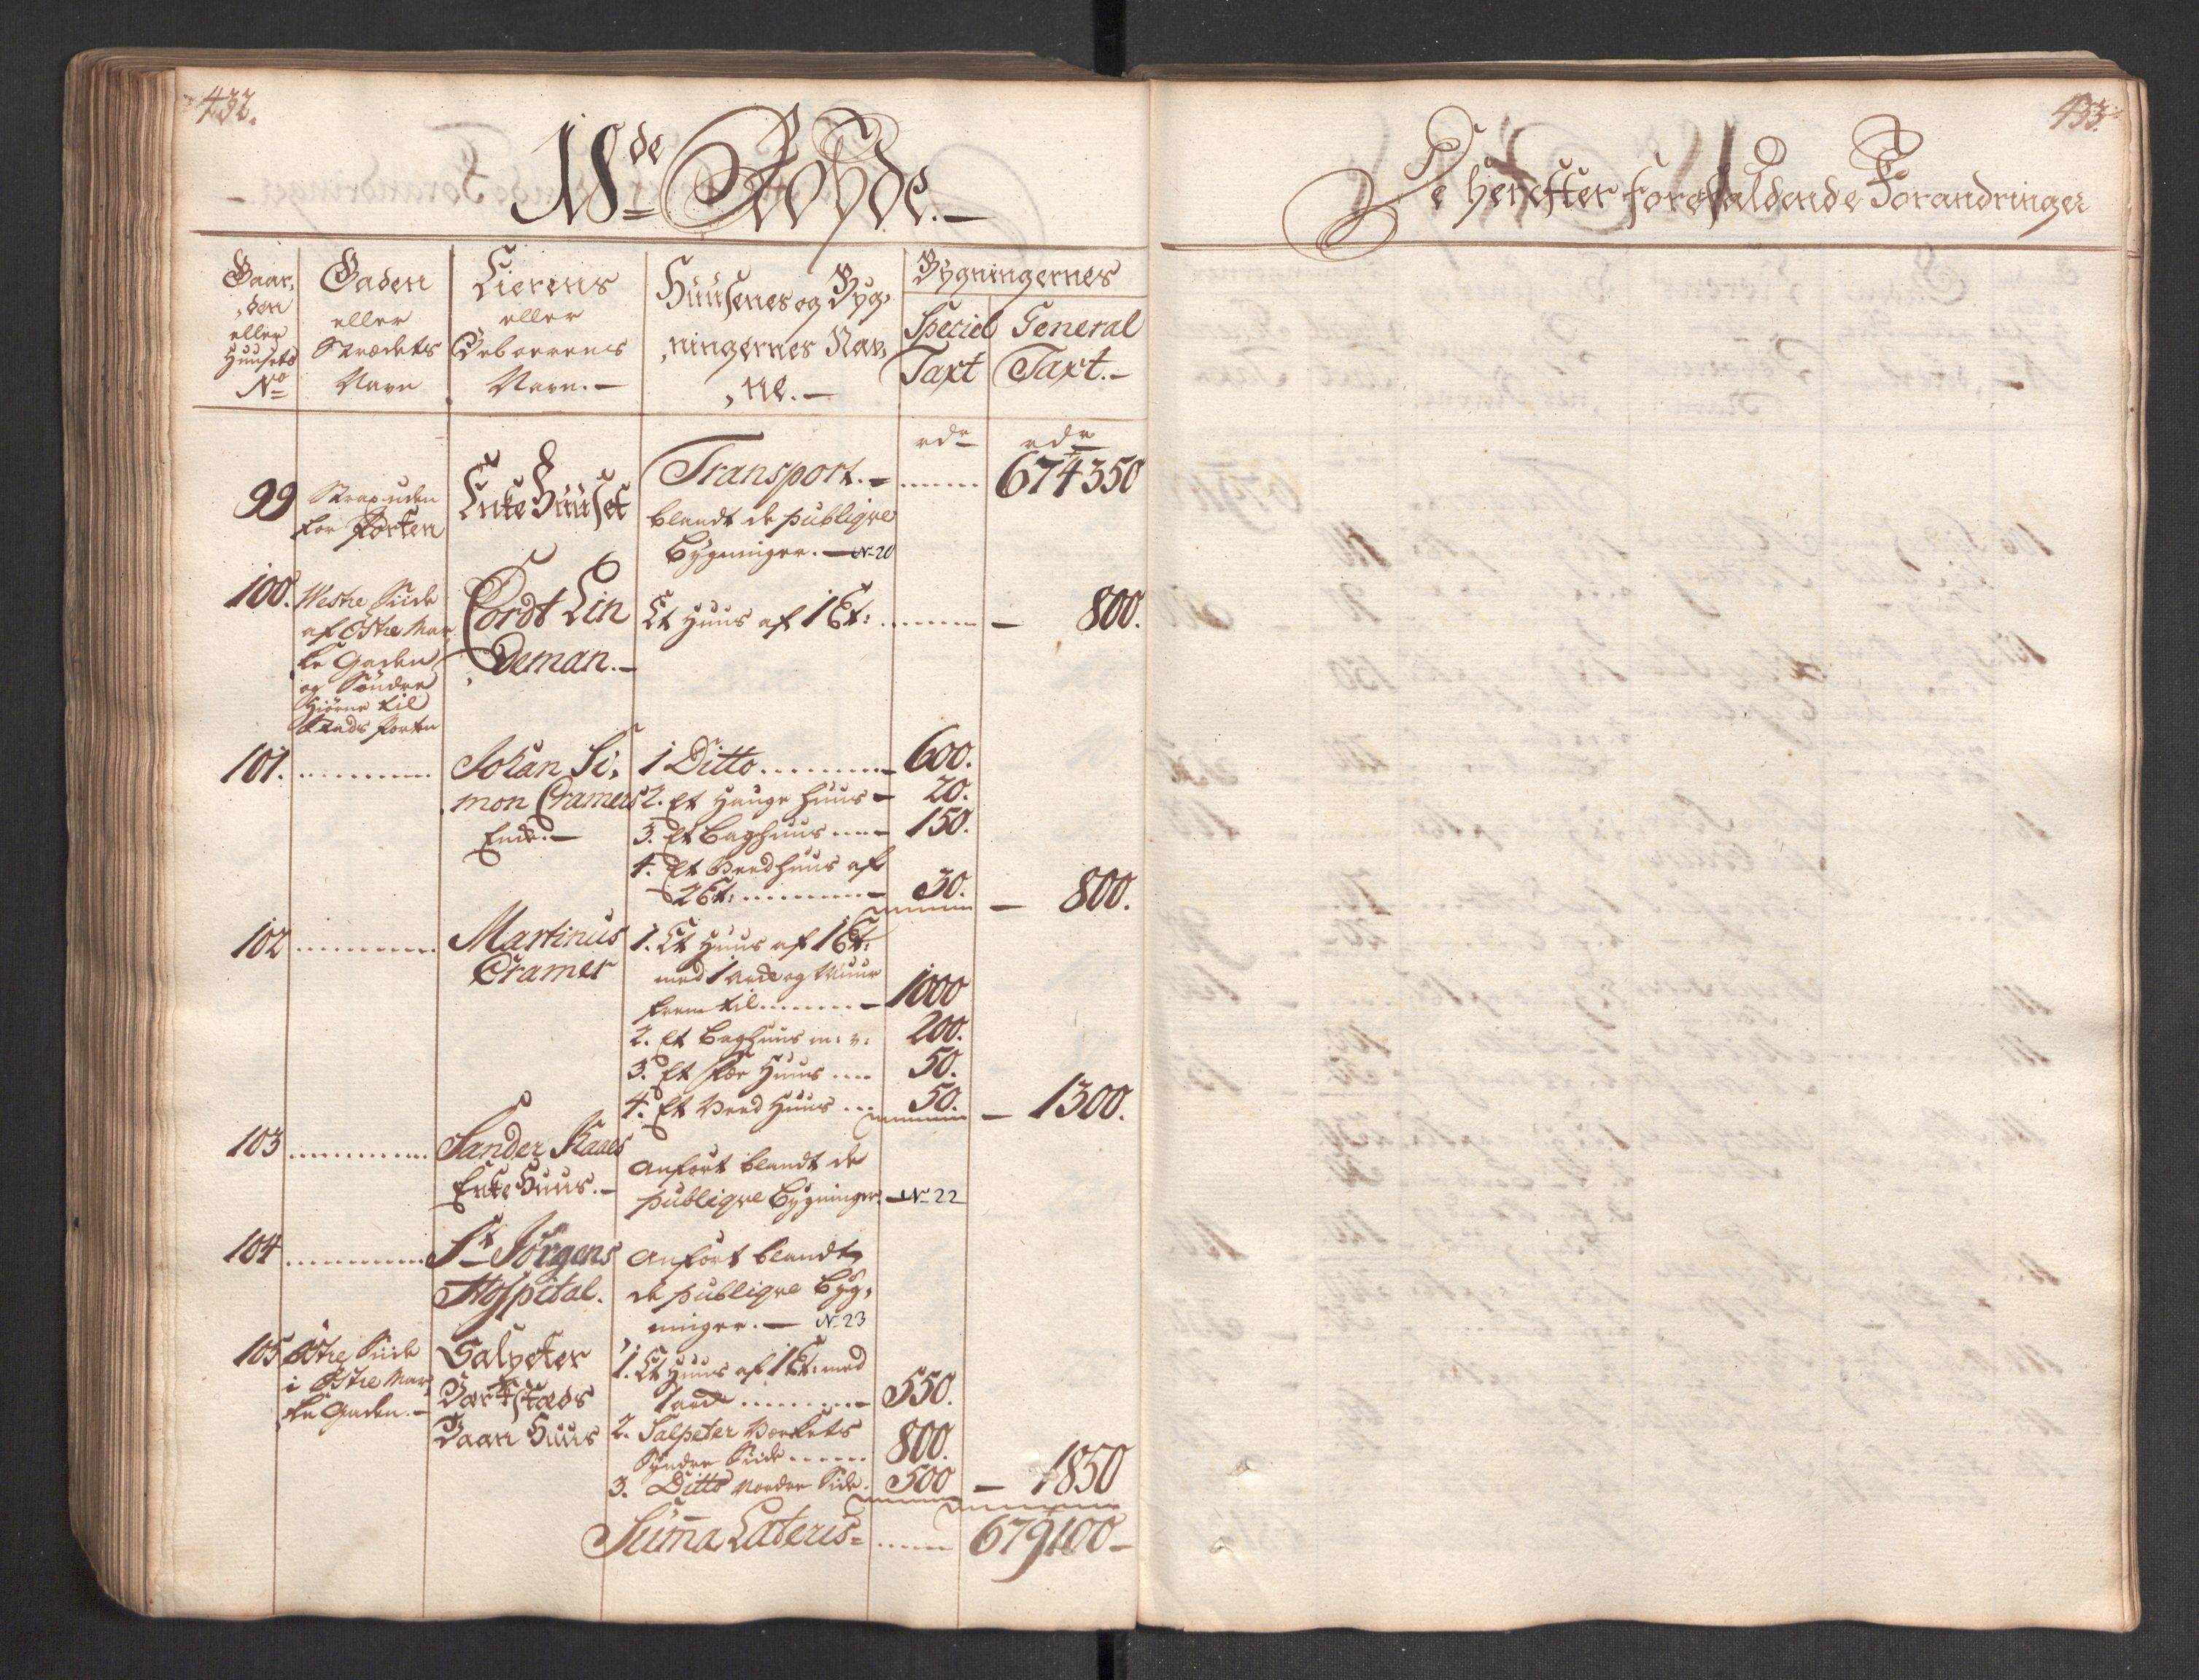 432.
18de Rohde.
Gaar,
,den
eller
Huusets
No
Gaden
eller
Strædets
Navn
Eierens
eller
Beboerens
Navn.
Huusenes og Byg,
,ningernes Nav,
,ne.
Bygningernes
Speciel
Taxt
General
Taxt.
rdr
rdr
Transport. 674350
99 Strax uden
for Porten
Enke Huuset
blandt de publiqve
bygninger. No 20
100. Westre Siide
af Östre Mar,
,ke Gaden
og Söndre
Hiörne til
Stads Porten
Cordt Lin
,deman.
Et Huus af 1 Et: 800.
101. Johan Si,
,mon Cramers
Enke.
1 Ditto 600.
2. Et Hauge Huus 20.
3. Et Baghuus 150.
4. Et Brendhuus af
2 Et: 30. 800.
102 Martinus
Cramer
1. Et Huus af 1 Et:
med 1 Arck og Muur
frem til 1000
2. Et Baghuus m: v: 200.
3. Et Fæe Huus 50.
4. Et Veed Huus 50. 1300.
103 Sander Kaaes
Enke Huus.
Anfört blandt de
publiqve bygninger. No 22
104 St Jörgens
Hospital.
Anfört blandt
de publiqve byg,
ninger. No 23
105 Östre Siide
i Östre Mar,
,ke Gaden.
Salpeter
Værkstæds
Vaan Huus
1. Et Huus af 1 Et: med
1 arck 550.
2. Salpeter Værkets
Syndre Siide 800.
3. Ditto Nordre Side. 500 1850
Suma Lateris 679100
433.
De herefter forefaldende Forandringer